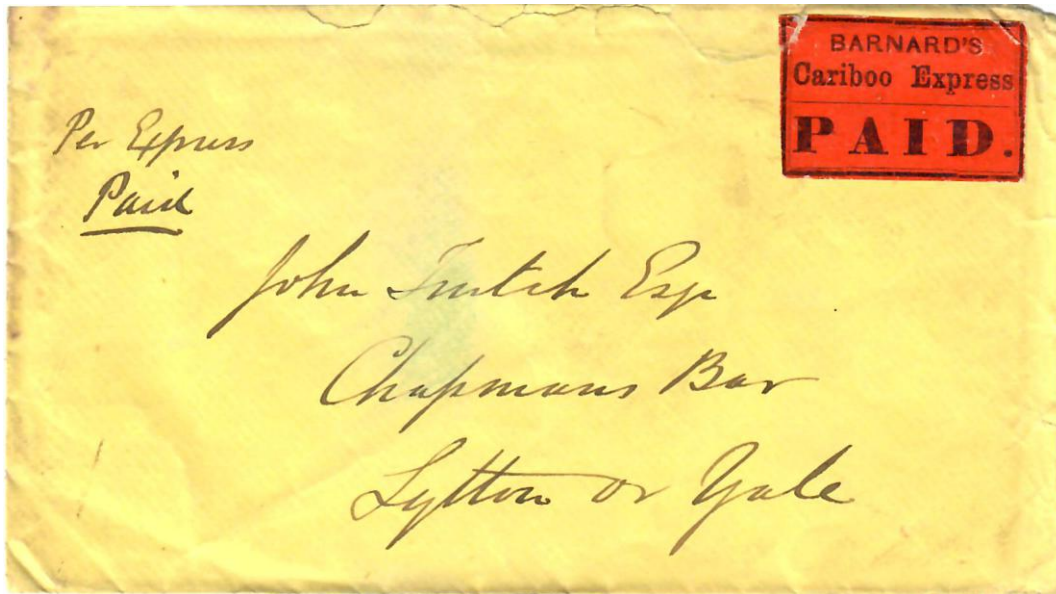 BARNARD'S
Cariboo Express
PAID.
Per Express
Paid
John Trutch Esqr
Chapmans Bar
Lytton or Yale